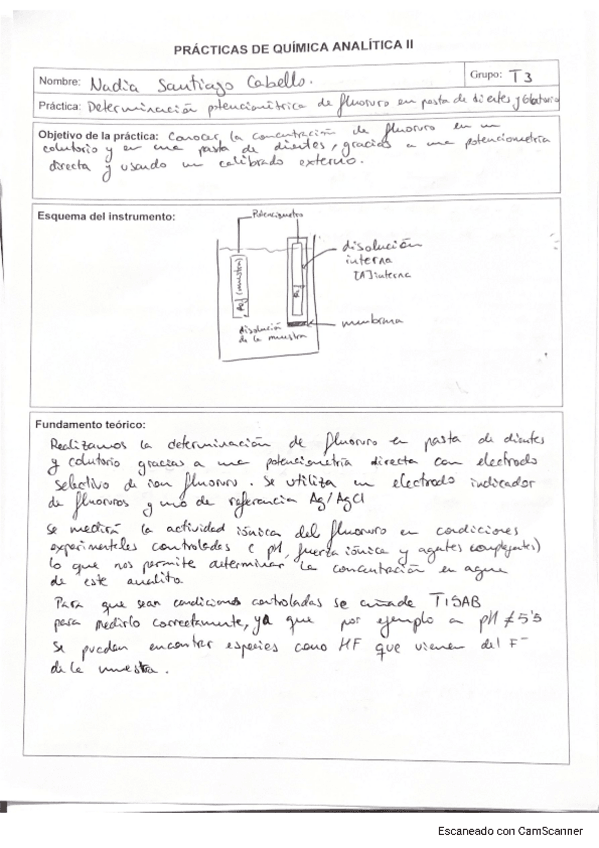 PRÁCTICAS DE QUÍMICA ANALÍTICA II
Nombre: Nadia Santiago Cabello.
Grupo: T3
Práctica: Determinación potenciométrica de fluoruro en pasta de dientes y colutorio
Objetivo de la práctica: Conocer la concentración de fluoruro en un
colutorio y en una pasta de dientes, gracias a una potenciometría
directa y usando un calibrado externo.
Esquema del instrumento:
Potenciómetro
disolución
interna
[A]interna
membrana
disolución
de la muestra
Fundamento teórico:
Realizamos la determinación de fluoruro en pasta de dientes
y colutorio gracias a una potenciometría directa con electrodo
selectivo de ion fluoruro. Se utiliza un electrodo indicador
de fluoruros y uno de referencia Ag/AgCl
Se medirá la actividad iónica del fluoruro en condiciones
experimentales controladas (pH, fuerza iónica y agentes complejantes)
lo que nos permite determinar la concentración en agua
de este analito.
Para que sean condiciones controladas se añade TISAB
para medirlo correctamente, ya que por ejemplo a pH ≠ 5'5
se pueden encontrar especies como HF que vienen del F⁻
de la muestra.
Escaneado con CamScanner